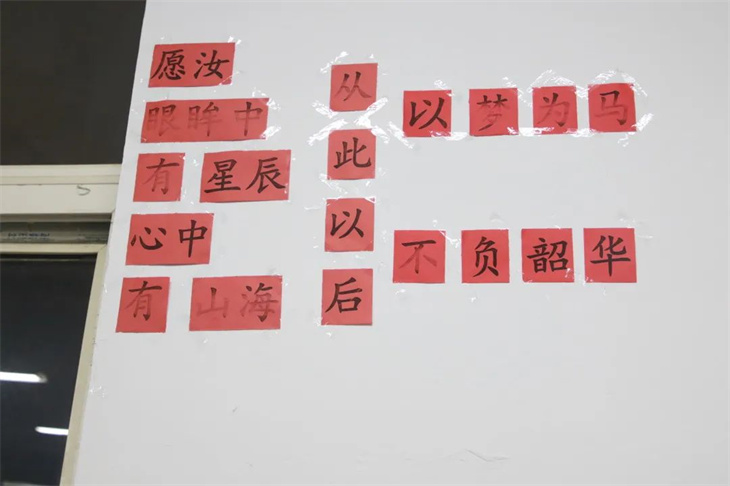 愿汝
眼眸中
有星辰
心中
有山海
从此以后
以梦为马
不负韶华